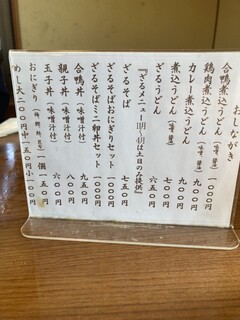 おしながき
合鴨煮込うどん（味噌 醤油） 一〇〇〇円
鶏肉煮込うどん（味噌 醤油） 九〇〇円
カレー煮込うどん 九〇〇円
煮込うどん（味噌 醤油） 七〇〇円
ざるうどん 六五〇円
『ざるメニュー 明〜明は土日のみ提供』
ざるそば 七五〇円
ざるそばおにぎりセット 九〇〇円
ざるそばミニ卵丼セット 一〇〇〇円
合鴨丼（味噌汁付） 九五〇円
親子丼（味噌汁付） 八〇〇円
玉子丼（味噌汁付） 六〇〇円
おにぎり 一個 一五〇円
めし大二〇〇円中一五〇円小一〇〇円